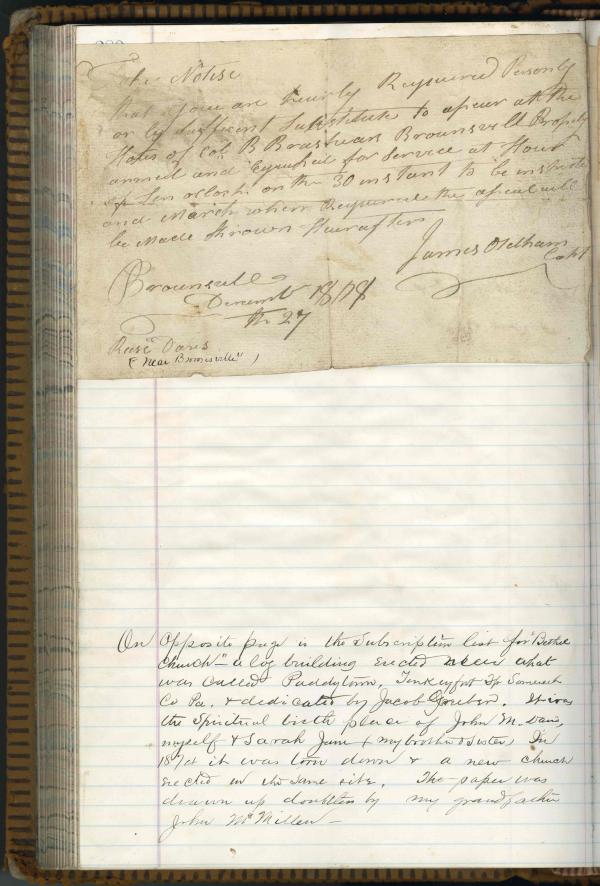 Take Notise
that you are heirby Requiered Personly
or by sufficent Substitute to apear at the
House of Col B Brashear Brounsvill Properly
armied and Equiped for Service at Hour
of Ten oclock on the 30 instant to be
and March when Required the apeal will
be Made known Hearafter
James Oldham
Capt
Brounsville
Decemb
th 27
Davis
(Near Brownsville)
On Opposite page is the Subscription list for "Bethel
Church" a log building erected near what
was called Paddytown, Turkeyfoot Tp Somerset
Co Pa. & dedicated by Jacob Gruber. It was
the Spiritual birth place of John M. Davis,
myself & Sarah Jane & my brother & Sister, In
it was torn down & a new church
erected on the same site. The paper was
drawn up doubtless by my grandfather
John McMillen—